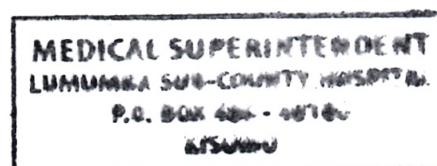 MEDICAL SUPERINTENDENT
LUMUMBA SUB-COUNTY HOSPITAL
P.O. BOX
KISUMU